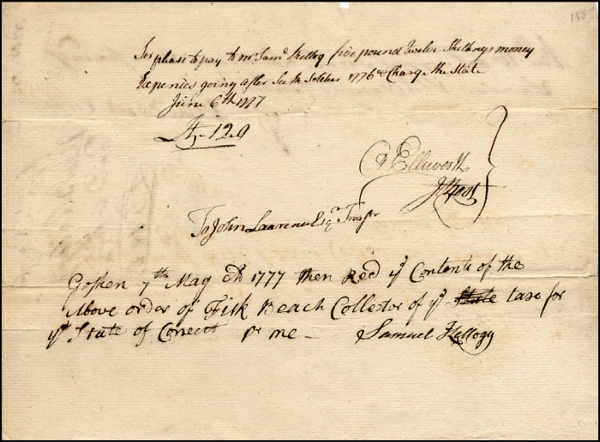 Sir please to pay to mr Saml Kellog five pound Twelve Shillings money
Expenies going after Sick Soldier 1776 & Charge the State
June 6th 1777
£5-12.0
O Ellsworth
J Root
To John Lawrence Esqr Treasr
Goshen 7th May AD 1777 then Recd ye Contents of the
Above order of Fisk Beach Collector of ye State taxe for
ye State of Conectt pr me - Samuel Kellogg